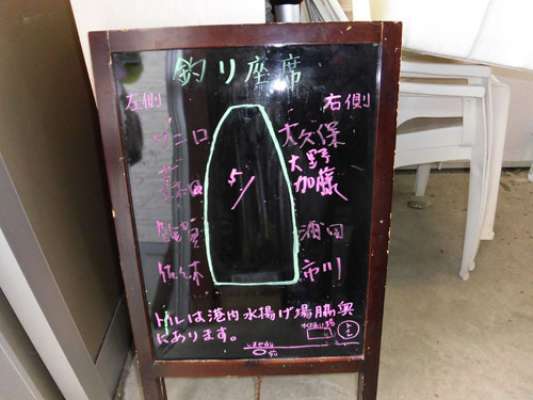 釣り座席
左側
右側
大久保
大野
加藤
5/
浦田
佐々木
市川
トイレは港内水揚げ場脇奥
にあります。